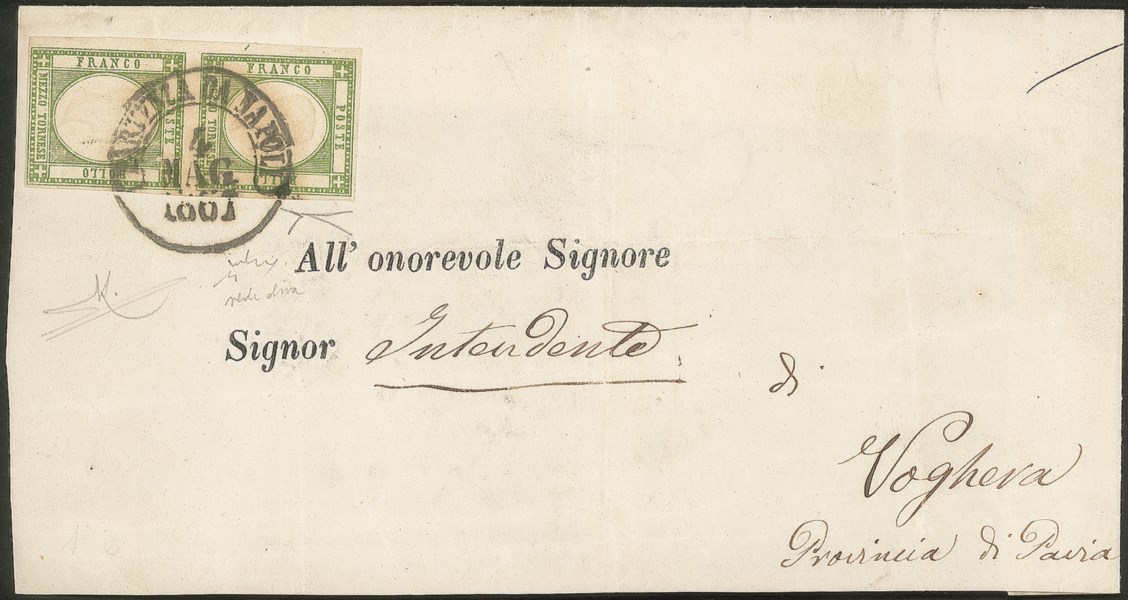 FRANCO
POSTE
BOLLO
MEZZO TORNESE
FRANCO
POSTE
TORNESE
PARTENZA DA NAPOLI
4
MAG
1861
All' onorevole Signore
Signor Intendente
di
Voghera
Provincia di Pavia